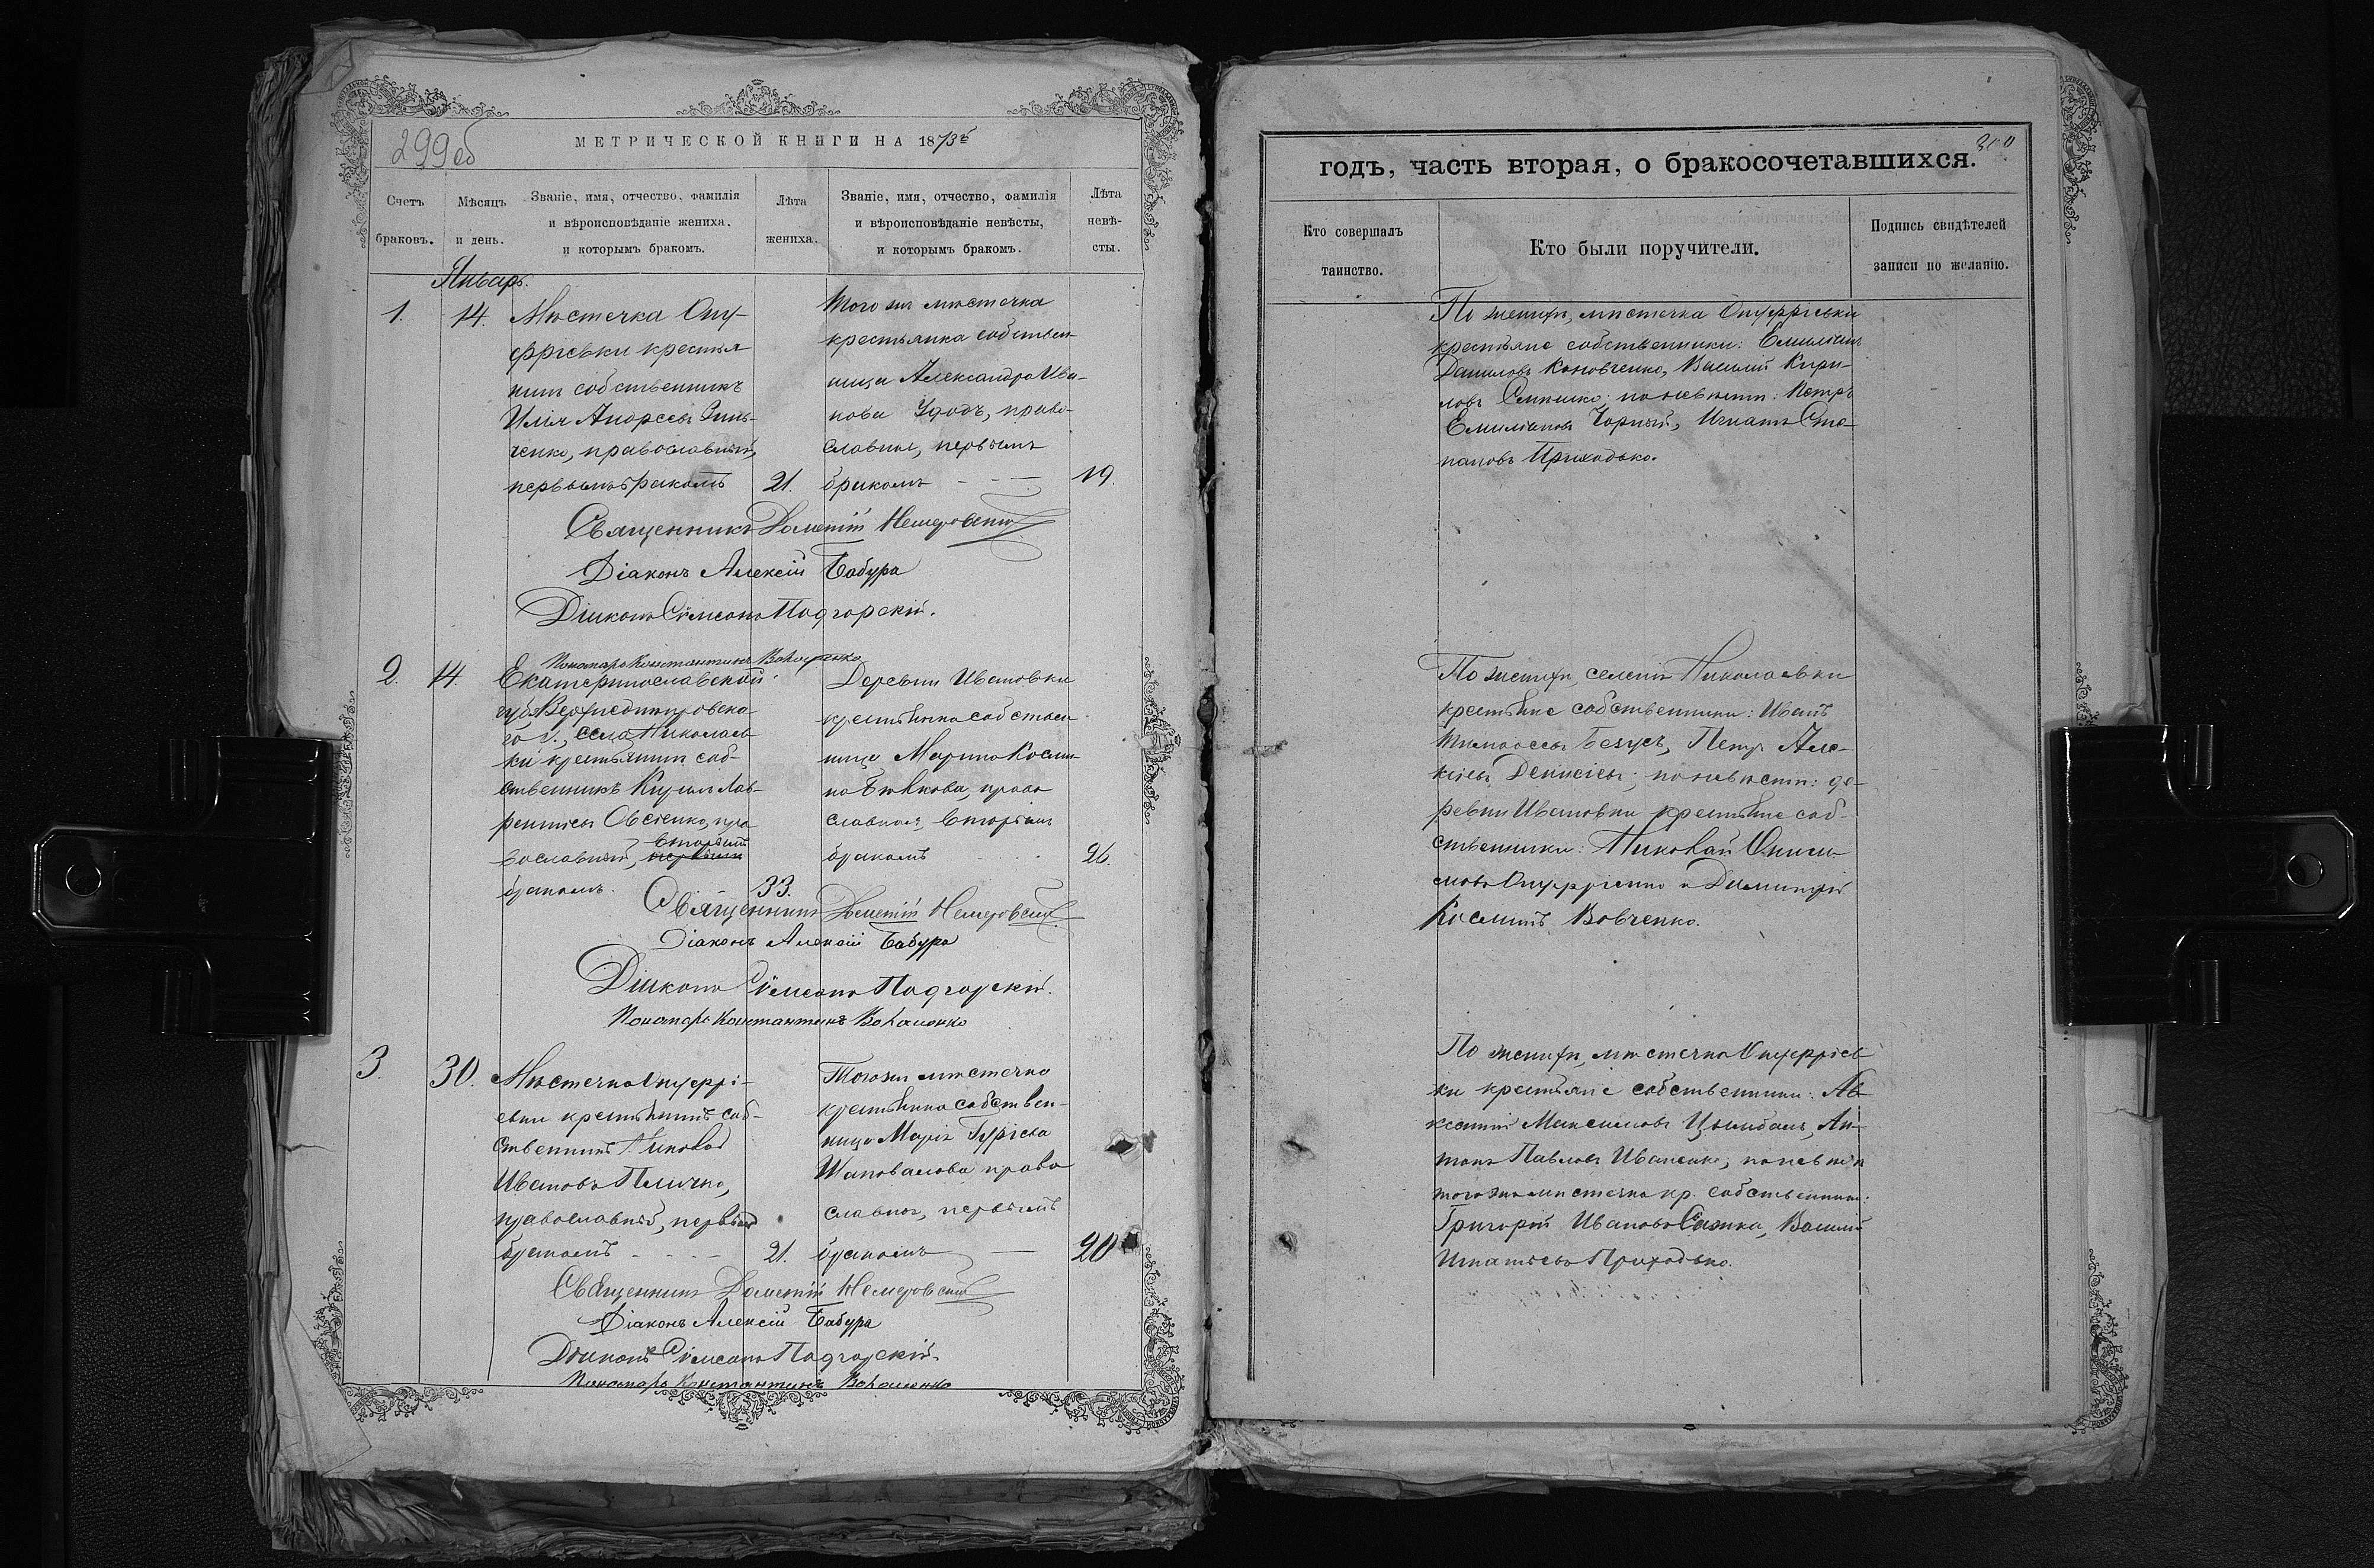 299об
МЕТРИЧЕСКОЙ КНИГИ НА 1873й
Счетъ браковъ.
Мѣсяцъ и день.
Званіе, имя, отчество, фамилія
и вѣроисповѣданіе жениха,
и которымъ бракомъ.
Лѣта жениха.
Званіе, имя, отчество, фамилія
и вѣроисповѣданіе невѣсты,
и которымъ бракомъ.
Лѣта невѣ-
сты.
Январь.
1.
14.
Мѣстечка Ону-
фріевки крестья-
нинъ собственникъ
Илія Андреевъ
ченко, православный,
первымъ бракомъ
21.
Того же мѣстечка
крестьянка собствен-
ница Александра Ива-
нова Удодъ, право-
славная, первымъ
бракомъ
19.
Священникъ Дометій Немеровскій
Діаконъ Алексій Бабура
Діаконъ Сѵмеонъ Подгорскій.
Пономарь Константинъ
2.
14.
Екатеринославской
губ. Верхнеднѣпровска-
го у., села Николаев-
ки крестьянинъ соб-
ственникъ Кирилъ Лав-
рентіевъ Овсіенко, пра-
вославный, вторымъ
первымъ
бракомъ.
33.
Деревни Ивановки
крестьянка собствен-
ница Марина Косми-
на православная, вторымъ
бракомъ
26.
Священникъ Дометій Немеровскій
Діаконъ Алексій Бабура
Діаконъ Сѵмеонъ Подгорскій.
Пономарь Константинъ
3.
30.
Мѣстечка Онуфрі-
евки крестьянинъ соб-
ственникъ Николай
Ивановъ
православный, первымъ
бракомъ
21.
Того же мѣстечка
крестьянка собствен-
ница Марія Гуріева
Шаповалова, право-
славная, первымъ
бракомъ
20
Священникъ Дометій Немеровскій
Діаконъ Алексій Бабура
Діаконъ Сѵмеонъ Подгорскій.
Пономарь Константинъ
300
годъ, часть вторая, о бракосочетавшихся.
Кто совершалъ
таинство.
Кто были поручители.
Подпись свидѣтелей
записи по желанію.
По женихѣ, мѣстечка Онуфріевки
крестьяне собственники: Емиліанъ
Даниловъ Коновченко, Василій Кири-
ловъ по невѣстѣ: Петръ
Емиліановъ Чорный, Игнатъ Сте-
пановъ Приходько.
По женихѣ, селенія Николаевки
крестьяне собственники: Иванъ
Тимофеевъ Безусъ, Петръ Але-
ксіевъ Денисіевъ; по невѣстѣ: де-
ревни Ивановки крестьяне соб-
ственники: НиколайОниси-
мовъ Онуфріенко и Димитрій
Косминъ Вовченко.
По женихѣ, мѣстечка Онуфріев-
ки крестьяне собственники: Ав-
ксентій Максимовъ Цымбалъ, Ан-
тонъ Павловъ Иваненко; по невѣстѣ
того же мѣстечка кр. собственники:
Григорій Ивановъ Василій
Игнатіевъ Приходько.